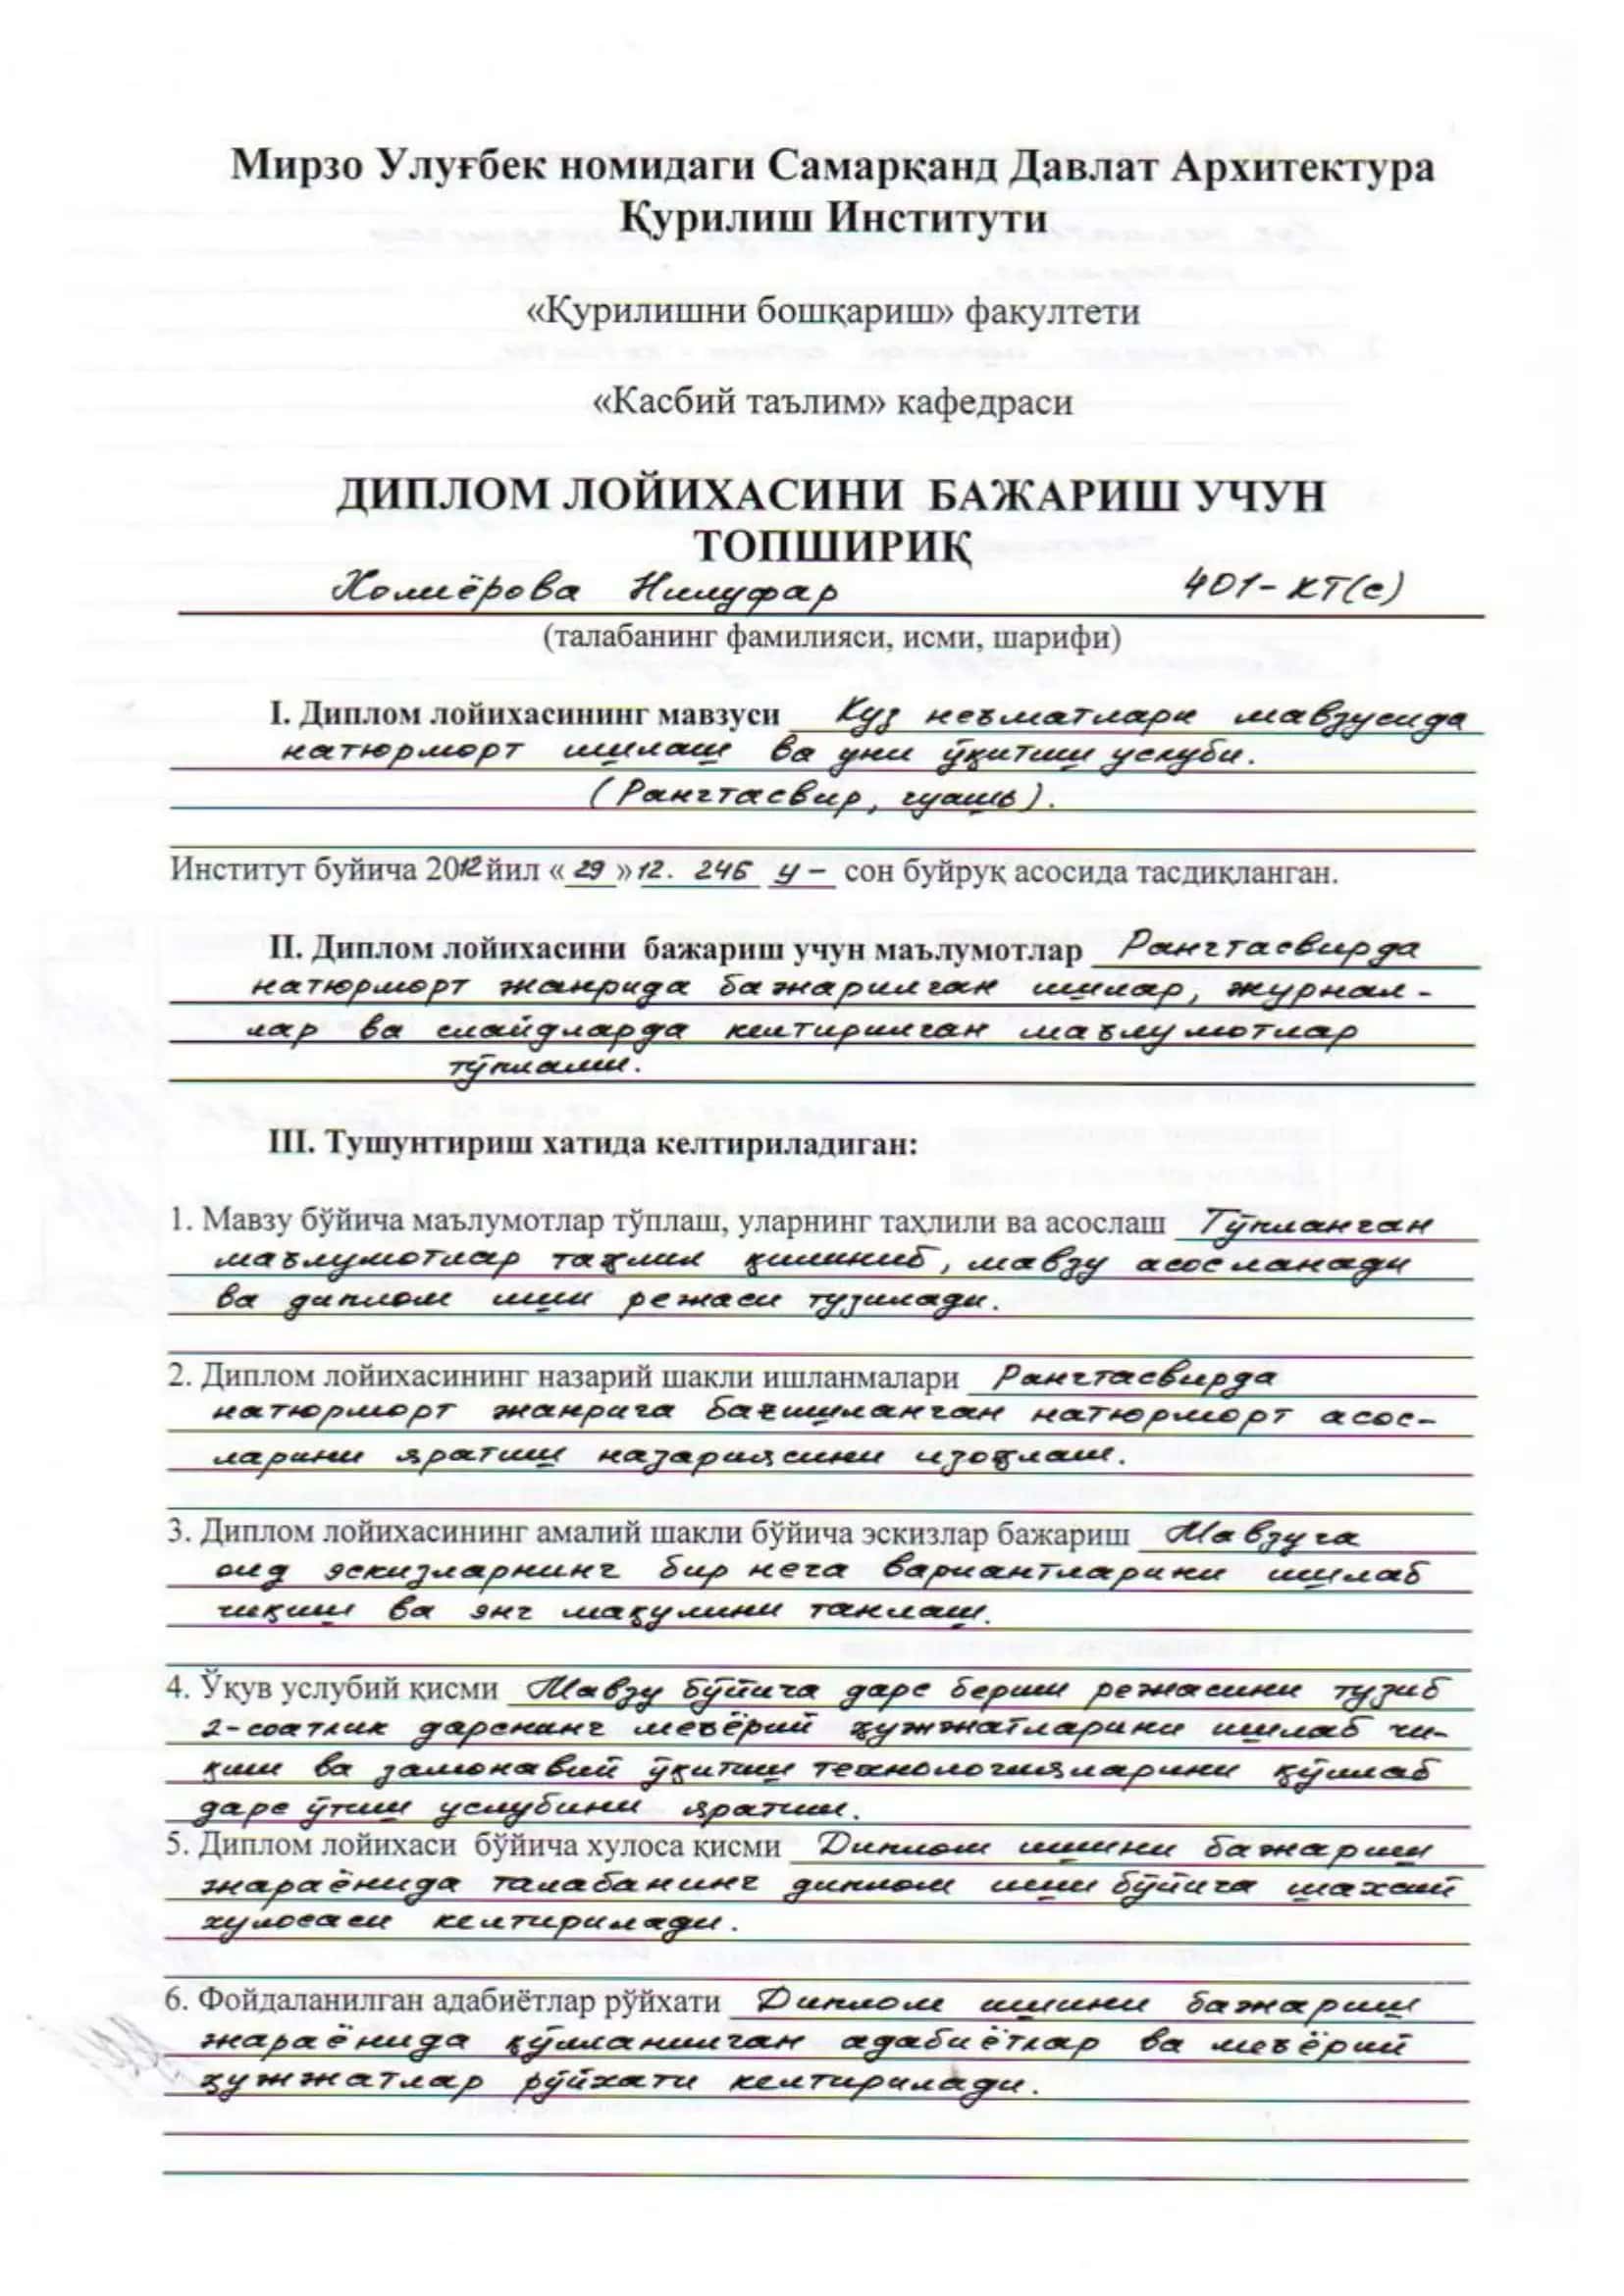 Мирзо Улуғбек номидаги Самарқанд Давлат Архитектура
Қурилиш Институти
«Қурилишни бошқариш» факултети
«Касбий таълим» кафедраси
ДИПЛОМ ЛОЙИХАСИНИ БАЖАРИШ УЧУН
ТОПШИРИҚ
Холиёрова Нилуфар 401-КТ(с)
(талабанинг фамилияси, исми, шарифи)
I. Диплом лойихасининг мавзуси Куз неъматлари мавзусида
натюрморт ишлаш ва уни ўқитиш услуби.
(Рангтасвир, гуашь).
Институт буйича 2012 йил «29» 12. 246 у- сон буйруқ асосида тасдиқланган.
II. Диплом лойихасини бажариш учун маълумотлар Рангтасвирда
натюрморт жанрида бажарилган ишлар, журнал-
лар ва слайдларда келтирилган маълумотлар
тўплами.
III. Тушунтириш хатида келтириладиган:
1. Мавзу бўйича маълумотлар тўплаш, уларнинг тахлили ва асослаш Тўпланган
маълумотлар таҳлил қилиниб, мавзу асосланади
ва диплом иши режаси тузилади.
2. Диплом лойихасининг назарий шакли ишланмалари Рангтасвирда
натюрморт жанрига бағишланган натюрморт асос-
ларини яратиш назариясини изоҳлаш.
3. Диплом лойихасининг амалий шакли бўйича эскизлар бажариш Мавзуга
оид эскизларнинг бир неча вариантларини ишлаб
чиқиш ва энг мақулини танлаш.
4. Ўқув услубий қисми Мавзу бўйича дарс бериш режасини тузиб
2-соатлик дарснинг меъёрий ҳужжатларини ишлаб чи-
қиш ва замонавий ўқитиш технологияларини қўллаб
дарс ўтиш услубини яратиш.
5. Диплом лойихаси бўйича хулоса қисми Диплом ишини бажариш
жараёнида талабанинг диплом иши бўйича шахсий
хулосаси келтирилади.
6. Фойдаланилган адабиётлар рўйхати Диплом ишини бажариш
жараёнида қўлланилган адабиётлар ва меъёрий
ҳужжатлар рўйхати келтирилади.